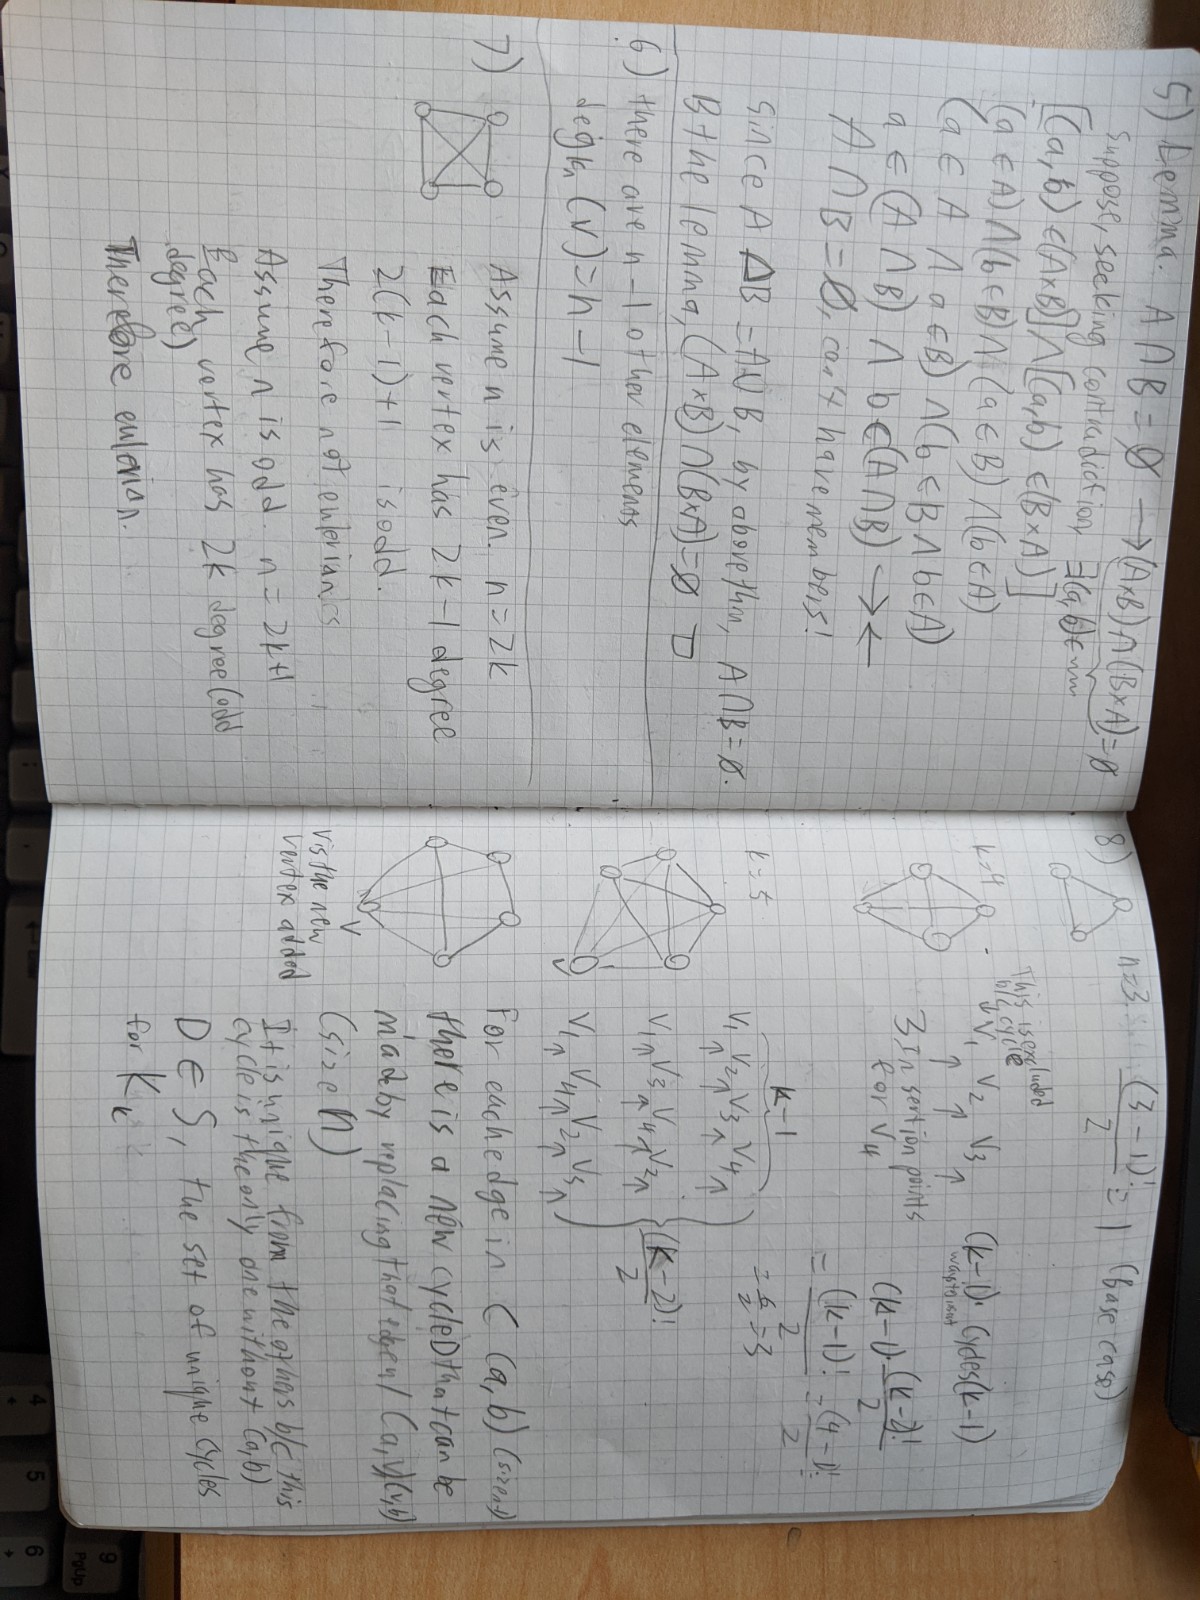 5) Lemma. A ∩ B = ∅ → (A×B) ∩ (B×A) = ∅
Suppose, seeking contradiction, ∃(a,b) ∈
[(a,b) ∈ (A×B)] ∧ [(a,b) ∈ (B×A)]
(a ∈ A) ∧ (b ∈ B) ∧ (a ∈ B) ∧ (b ∈ A)
(a ∈ A ∧ a ∈ B) ∧ (b ∈ B ∧ b ∈ A)
a ∈ (A ∩ B) ∧ b ∈ (A ∩ B) → ←
A ∩ B = ∅, can't have members!
Since A Δ B = A ∪ B, by above thm, A ∩ B = ∅.
B the lemma, (A×B) ∩ (B×A) = ∅ □
6) there are n-1 other elements
deg kn (v) = n-1
7) Assume n is even. n = 2k
Each vertex has 2k-1 degree
2(k-1)+1 is odd.
Therefore not eulerian
Assume n is odd. n = 2k+1
Each vertex has 2k degree (odd
degree)
Therefore eulerian.
8) n=3 (3-1)!/2 = 1 (base case)
k=4
This is excluded
b/c cycle
V1 ∧ V2 ∧ V3 ∧
3 Insertion points
for V4
(k-1) · Cycles(k-1)
ways to insert
(k-1) · (k-2)!/2
= (k-1)!/2 = (4-1)!/2
= 6/2 = 3
k=5
k-1
V1 ∧ V2 ∧ V3 ∧ V4 ∧
V1 ∧ V3 ∧ V4 ∧ V2 ∧
V1 ∧ V4 ∧ V2 ∧ V3 ∧
(k-2)!/2
V
For each edge in C (a,b) (size n-1)
there is a new cycle D that can be
made by replacing that edge w/ (a,v)(v,b)
(size n)
V
V is the new
vertex added
It is unique from the others b/c this
cycle is the only one without (a,b)
D ∈ S, the set of unique cycles
for Kk
4
5
6
9
PgUp